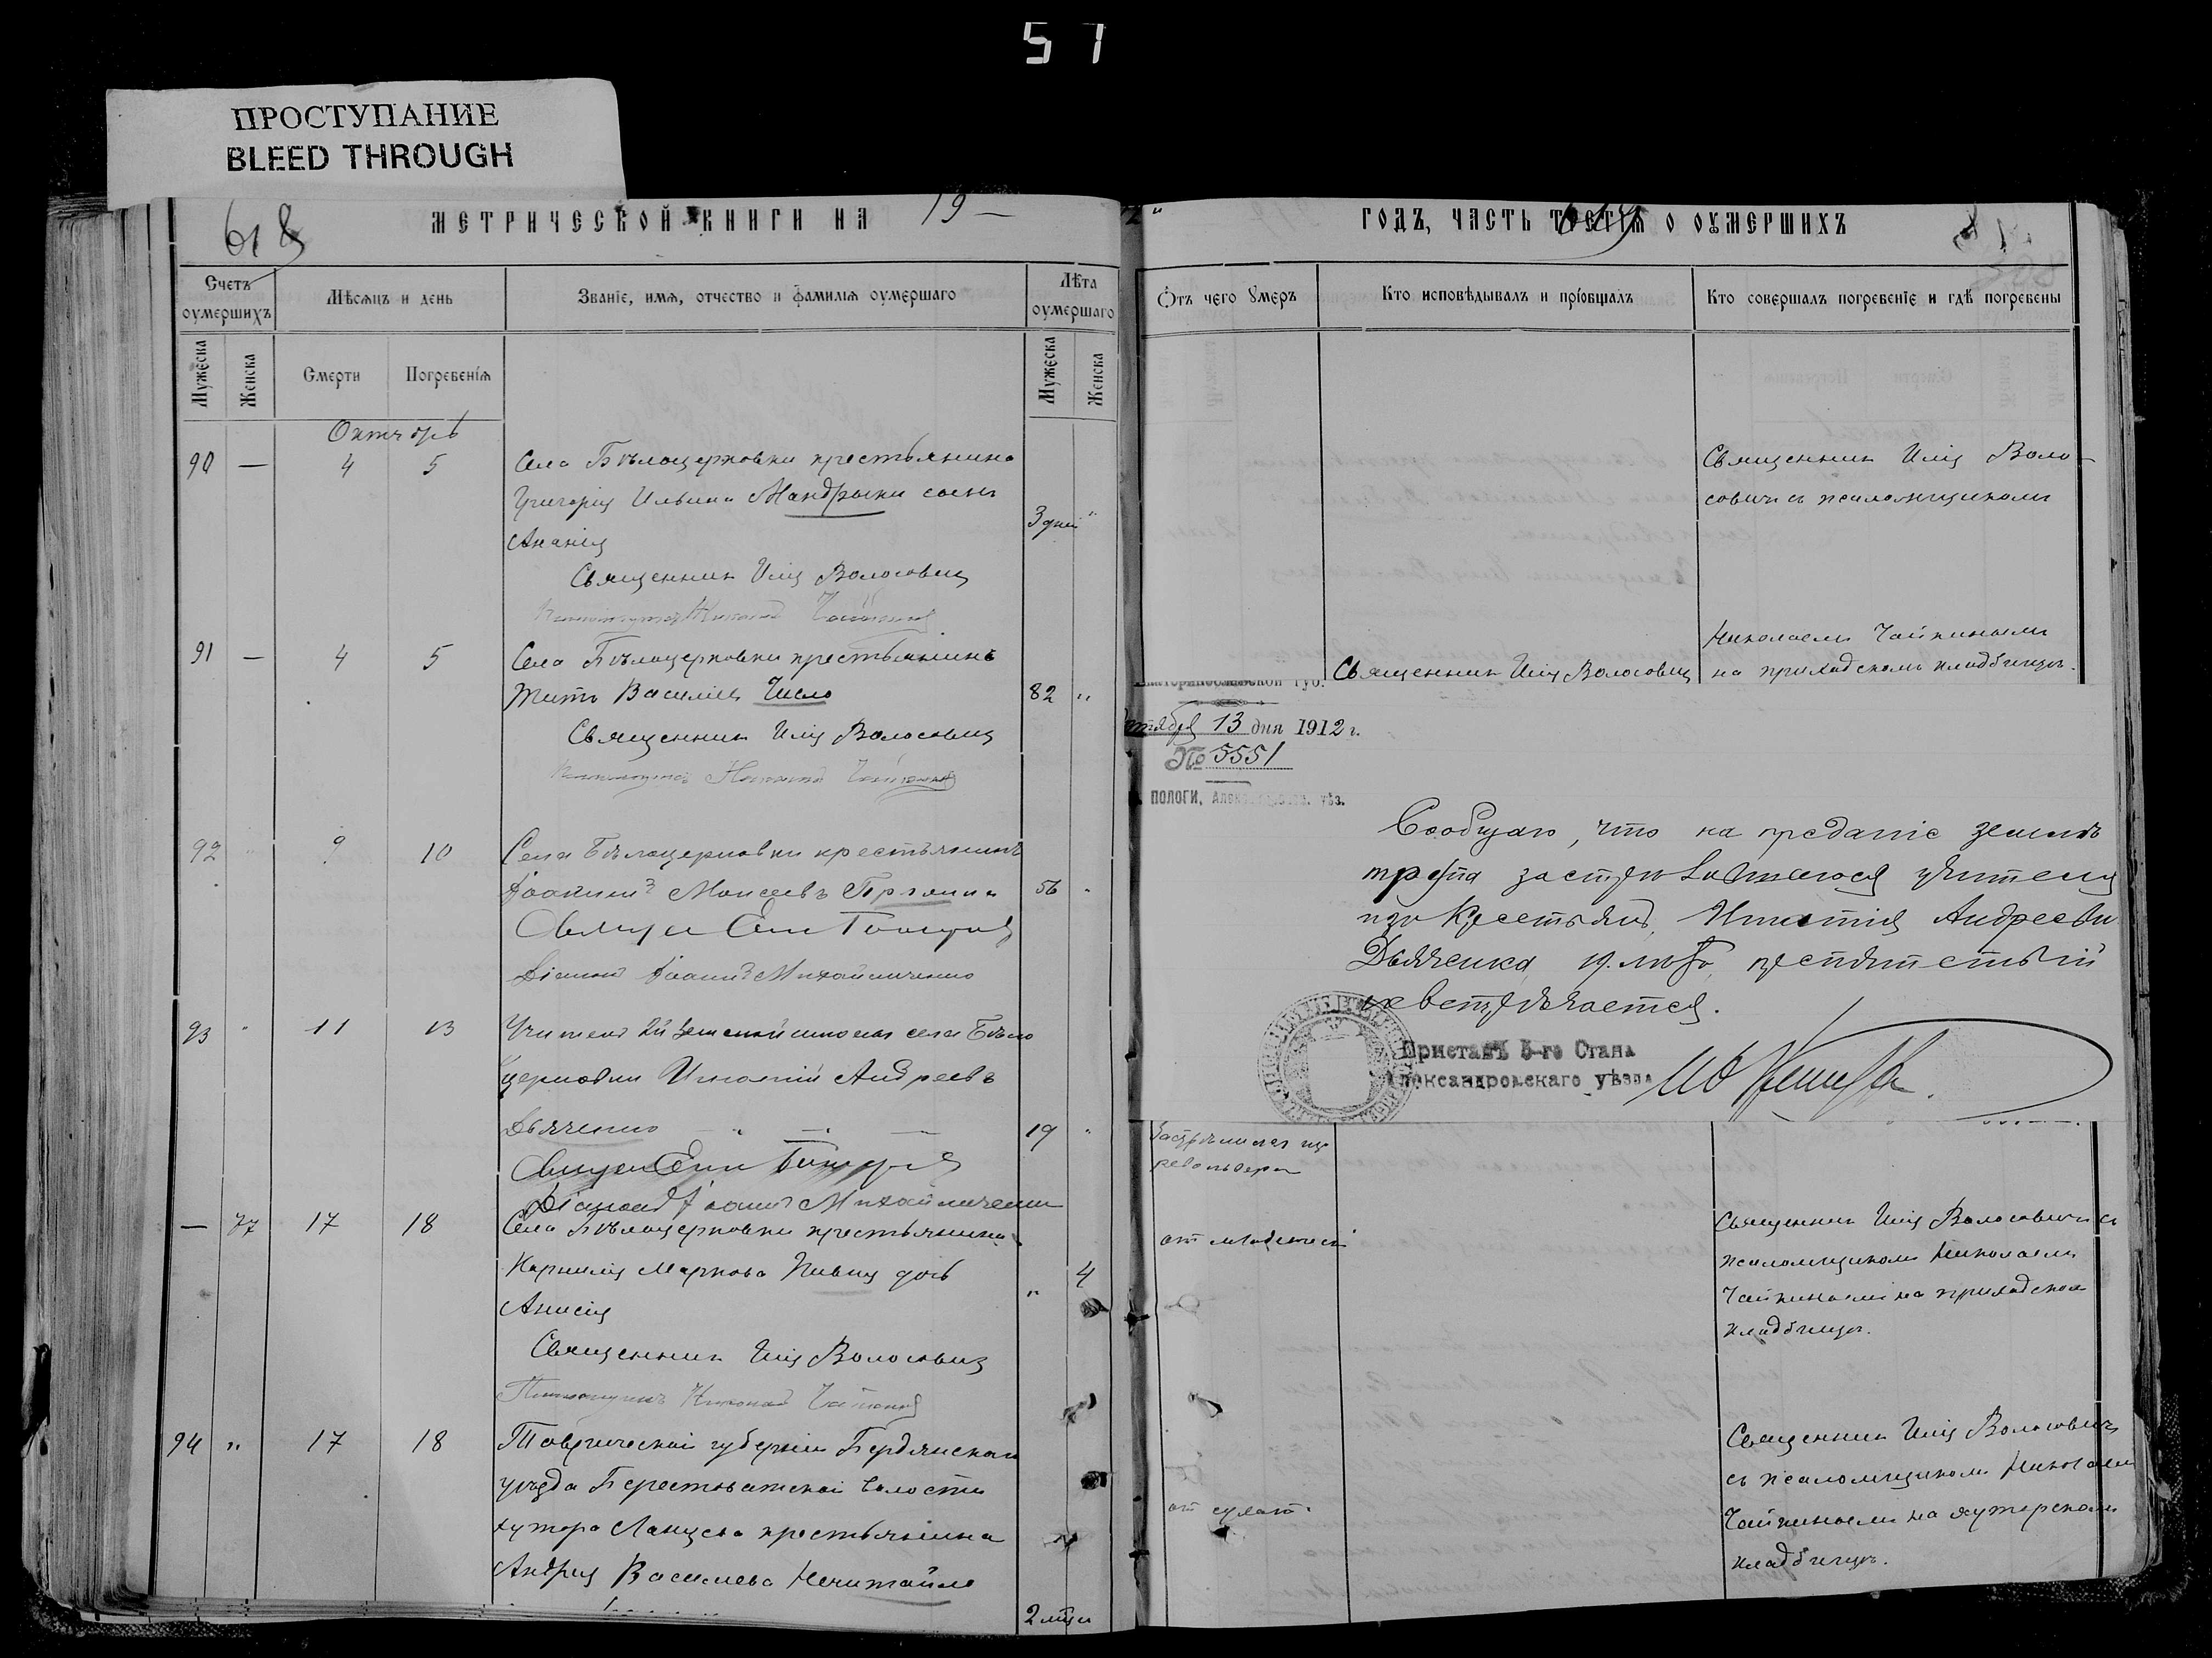 51
ПРОСТУПАНИЕ
BLEED THROUGH
618
МЕТРИЧЕСКОЙ КНИГИ НА 19
Счетъ оумершихъ
Мѣсяцъ и день
Званіе, имя, отчество и фамилія оумершаго
Лѣта оумершаго
Мужеска
Женска
Смерти
Погребенія
Мужеска
Женска
Октябрь
90 — 4 5 Села Бѣлоцерковки крестьянина
Григорія Ильина Мандрыки сынъ
3 дней "
Ананія
Священникъ Илія Волосовичъ
Николай Чайкинъ
91 — 4 5 Села Бѣлоцерковки крестьянинъ
Титъ Василіевъ Число 82 "
Священникъ Илія Волосовичъ
Николай Чайкинъ
92 " 9 10 Села Бѣлоцерковки крестьянинъ
Іоаннъ Моисеевъ 56 "
Діаконъ Іоаннъ Михайличенко
93 " 11 13 Учитель 2й земской школы села Бѣло
церковки Игнатій Андреевъ
Дьяченко 19 "
Діаконъ Іоаннъ Михайличенко
— 77 17 18 Села Бѣлоцерковки крестьянина
Корнилія Маркова Пивня дочь " 4
Анисія
Священникъ Илія Волосовичъ
Псаломщикъ Николай Чайкинъ
94 " 17 18 Таврической губерніи Бердянскаго
уѣзда Берестоватской волости
хутора Ланцева крестьянина
Андрея Василіева Нечитайло
2 мѣся
ГОДЪ, ЧАСТЬ ТРЕТІЯ О ОУМЕРШИХЪ
Отъ чего умеръ
Кто исповѣдывалъ и пріобщалъ
Кто совершалъ погребеніе и гдѣ погребены
Священникъ Илія Воло-
совичъ съ псаломщикомъ
Николаемъ Чайкинымъ
Священникъ Илія Волосовичъ
на приходскомъ кладбищѣ.
Екатеринославской губ.
13 дня 1912 г.
№ 5551
ПОЛОГИ, Александров. уѣз.
Сообщаю, что на преданіе землѣ
трупа застрѣлившагося учителя
изъ крестьянъ, Игнатія Андреева
Дьяченка, 19 лѣтъ, препятствій
не встрѣчается.
Приставъ 5-го Стана
Александровскаго уѣзда
Застрѣлился изъ
револьвера
от младенческ
Священникъ Илія Волосовичъ съ
псаломщикомъ Николаемъ
Чайкинымъ на приходскомъ
кладбищѣ.
Священникъ Илія Волосовичъ
съ псаломщикомъ Николаемъ
Чайкинымъ на хуторскомъ
кладбищѣ.